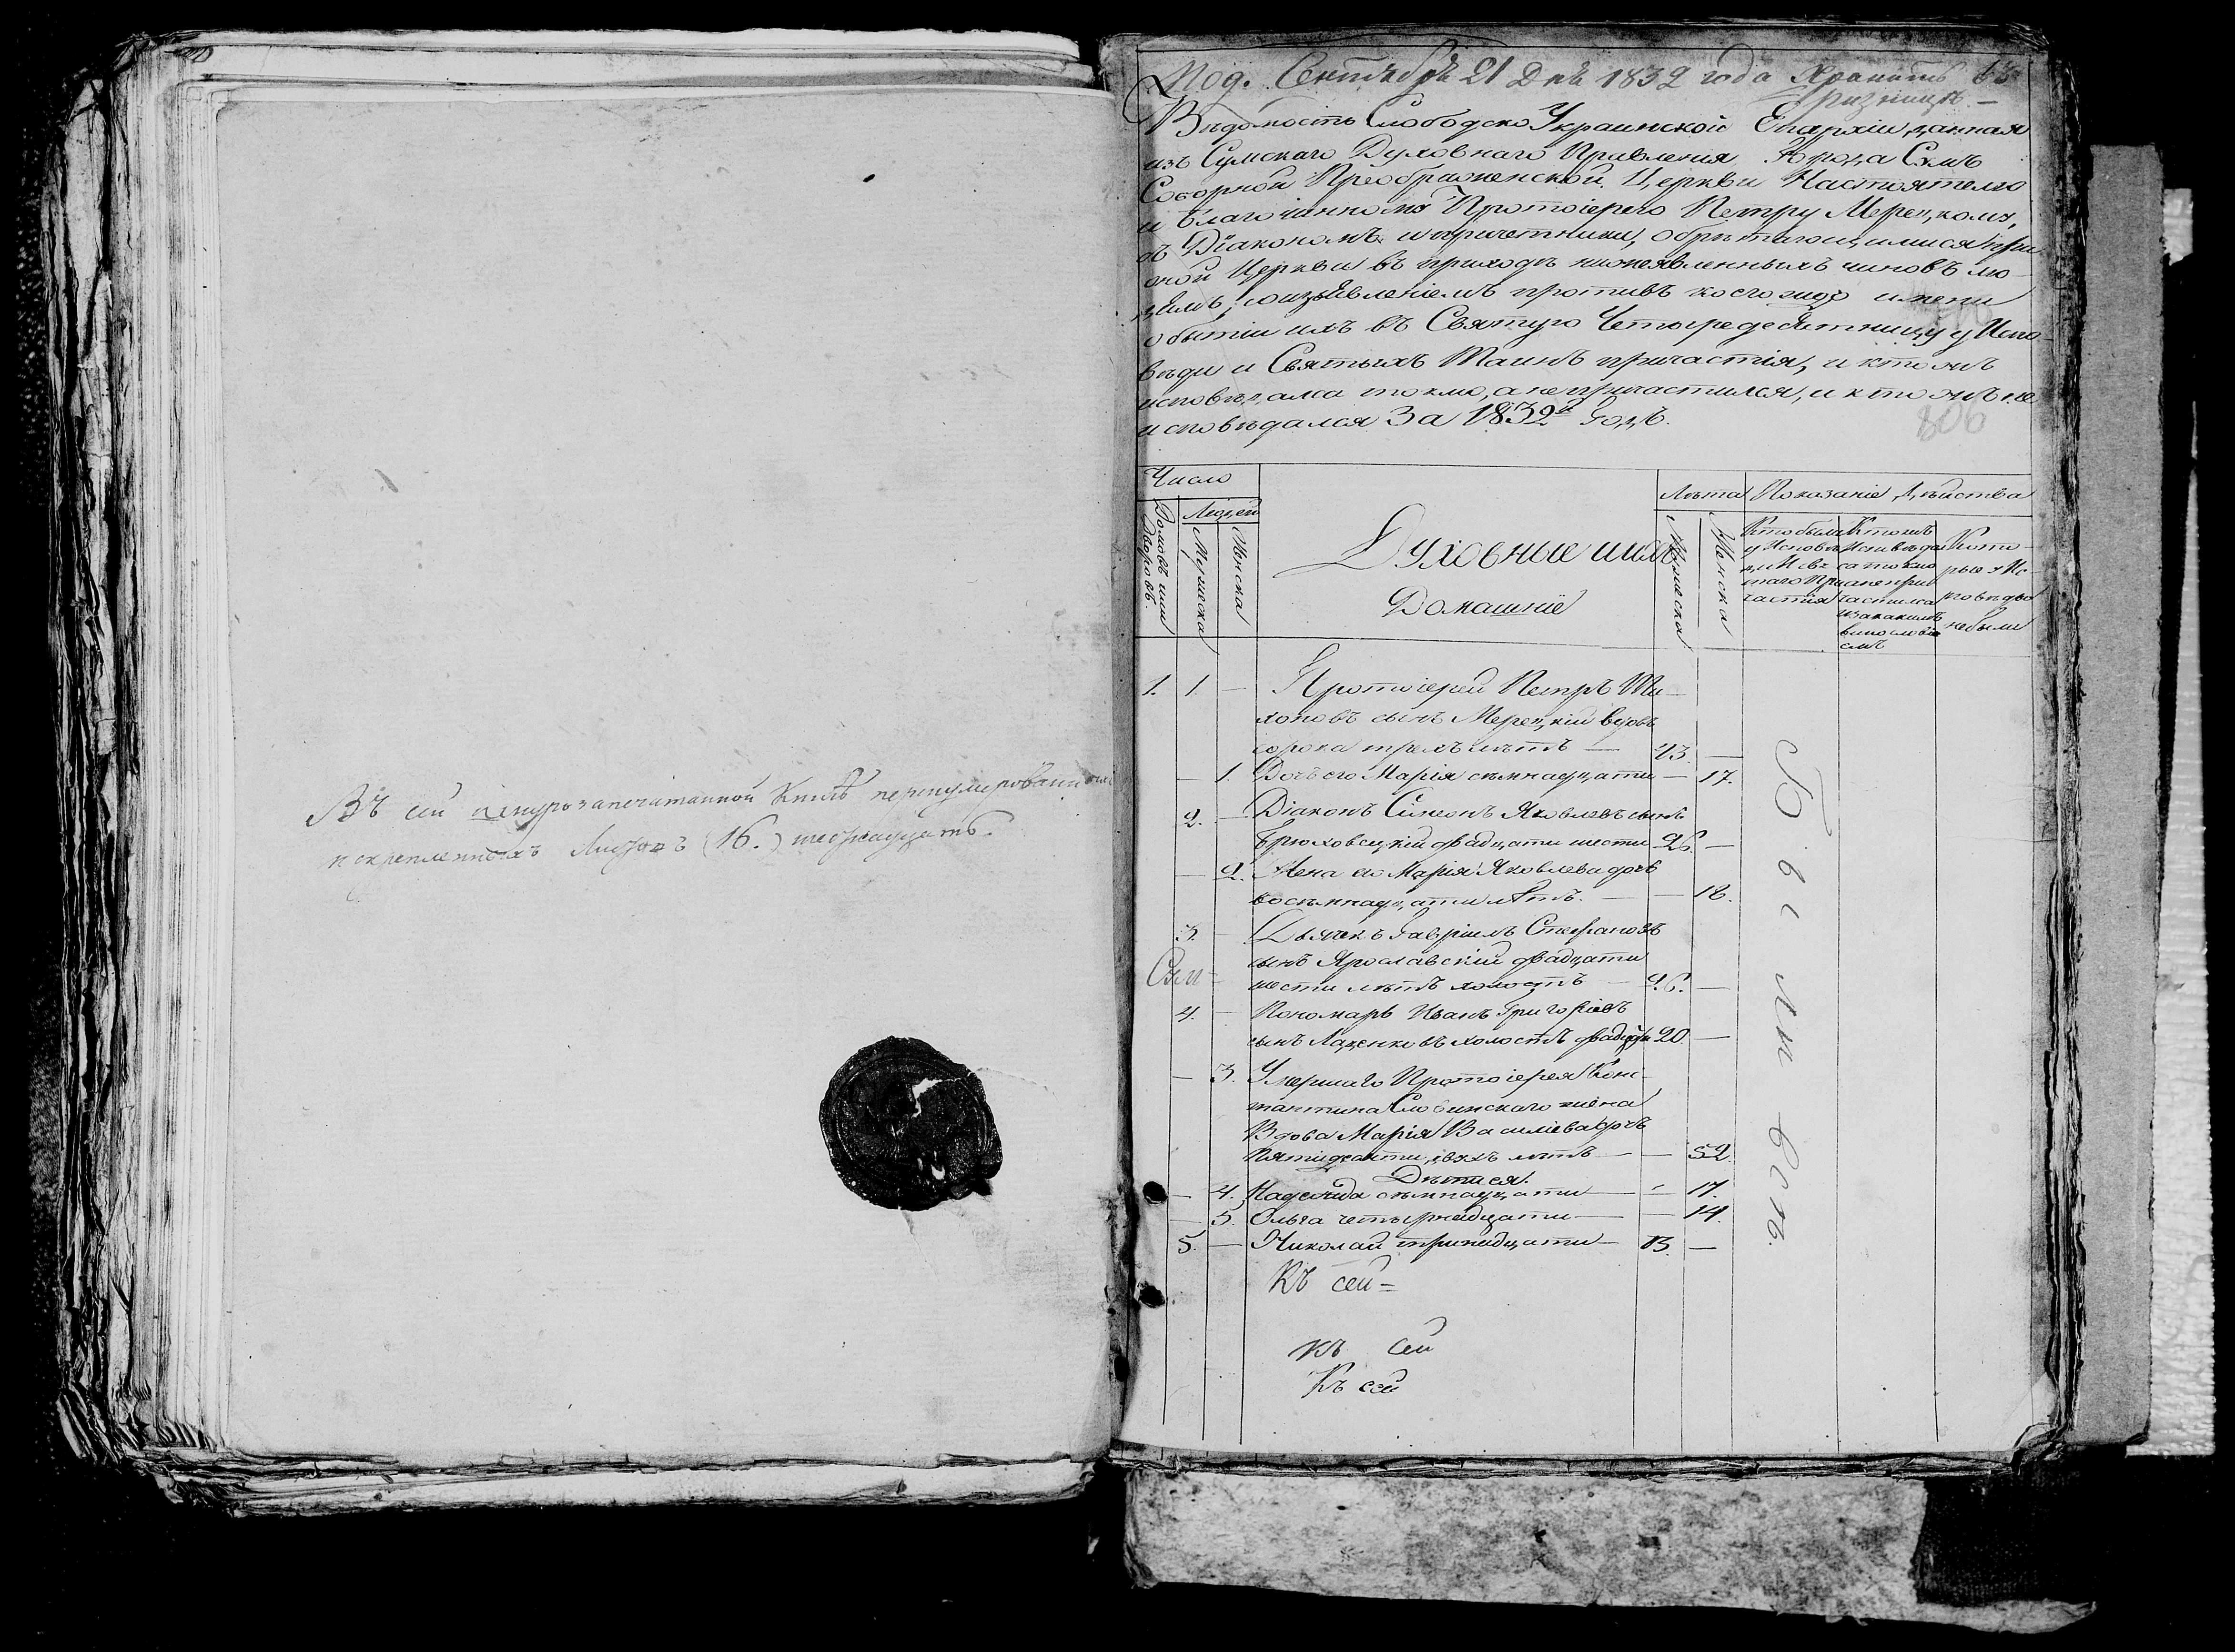 Въ сей шнурозапечатанной Книгѣ перенумерованныхъ
и скрепленныхъ Листовъ (16.) шеснадцать.
Под. Сентября 21 Дня 1832 года Хранить въ
ризницѣ. —
Вѣдомость Слободско Украинской Епархіи, данная
изъ Сумскаго Духовнаго Правленія Города Сумъ
Соборной Преображенской Церкви Настоятелю
и благочинному Протоіерею Петру Мерецкому,
съ Діакономъ и причетники, обрѣтающимися при
оной Церкви въ приходѣ нижеявленныхъ чиновъ лю-
демъ, со изъявленіемъ противъ коегождо имени
о бытіи ихъ въ Святую Четыредесятницу у Испо-
вѣди и Святыхъ Таинъ причастія, и кто жъ
исповѣдался токмо, а не причастился, и кто жъ не
исповѣдался За 1832й Годъ.
806
Число
Домовъ или Дворовъ.
Людей
Мужеска
Женска
Духовные и ихъ
Домашніе
Лѣта
Мужеска
Женска
Показаніе Дѣйства
Кто были
у Исповѣ
ди и Свя
таго При
частія
Кто жъ
Исповѣдал
ся токмо
а не прич
частился
и за какимъ
винословіе
емъ
Кото-
рые у Ис-
повѣди
не были
1. 1. — Протоіерей Петръ Ти-
хоновъ сынъ Мерецкій вдовъ
сорока трехъ лѣтъ — 43. —
— 1. Дочь его Марія семнадцати — 17.
2. — Діаконъ Сімеонъ Яковлевъ сынъ
Брюховецкій двадцати шести 26. —
— 2. Жена его Марія Яковлева дочь
восемнадцати лѣтъ. — — 18.
3. — Дьячекъ Гавріилъ Стефановъ
сынъ Ярославскій двадцати
шести лѣтъ холостъ — 26. —
Сум-
4. — Пономарь Иванъ Григоріевъ
сынъ Лащенковъ холостъ двадцати 20. —
— 3. Умершаго Протоіерея Конс-
тантина Словинскаго жена
Вдова Марія Василіева дочь
пятидесяти двухъ лѣтъ — — 52.
Дѣти ея.
— 4. Надежда семнадцати — — 17.
— 5. Ольга четырнадцати — — 14.
5. — Николай тринадцати — 13. —
Были всѣ.
Къ сей =
къ сей
Къ сей